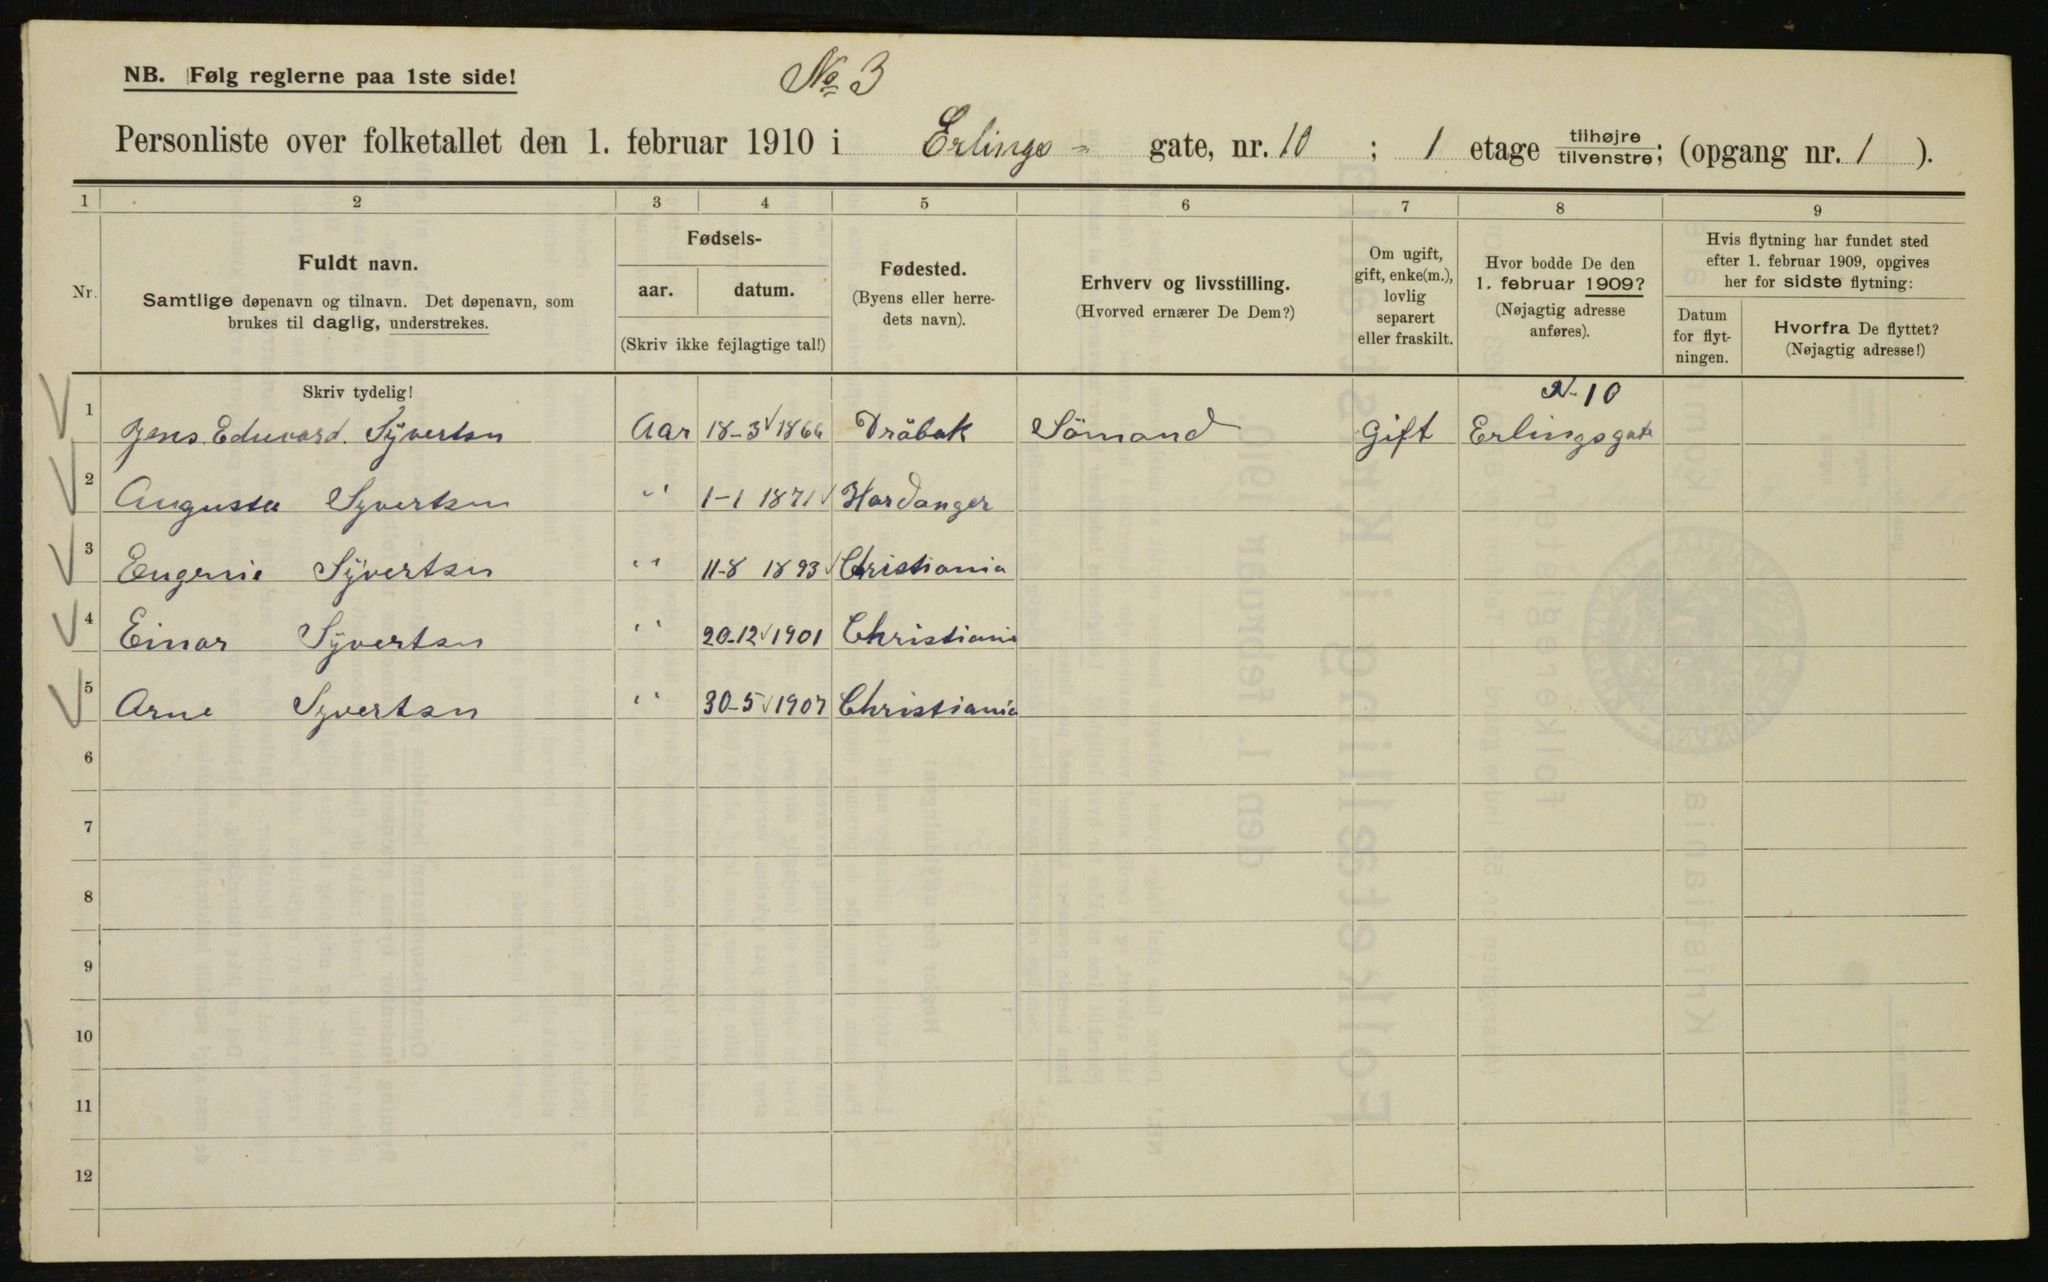 NB. Følg reglerne paa 1ste side!
No 3
Personliste over folketallet den 1. februar 1910 i Erlings- gate, nr. 10 ; 1 etage tilhøjre/tilvenstre; (opgang nr. 1 ).
1 2 3 4 5 6 7 8 9
Nr.
Fuldt navn.
Samtlige døpenavn og tilnavn. Det døpenavn, som
brukes til daglig, understrekes.
Fødsels-
aar. datum.
(Skriv ikke fejlagtige tal!)
Fødested.
(Byens eller herre-
dets navn).
Erhverv og livsstilling.
(Hvorved ernærer De Dem?)
Om ugift,
gift, enke(m.),
lovlig
separert
eller fraskilt.
Hvor bodde De den
1. februar 1909?
(Nøjagtig adresse
anføres).
Hvis flytning har fundet sted
efter 1. februar 1909, opgives
her for sidste flytning:
Datum
for flyt-
ningen.
Hvorfra De flyttet?
(Nøjagtig adresse!)
Skriv tydelig!
N. 10
1 Jens Eduvard. Syvertsn Aar 18-3 1866 Dröbak Sömand Gift Erlingsgate
2 Augusta Syvertsn " 1-1 1871 Hardanger
3 Eugenie Syvertsn " 11-8 1893 Christiania
4 Einar Syvertsn " 20-12 1901 Christiania
5 Arne Syvertsn " 30-5 1907 Christiania
6
7
8
9
10
11
12